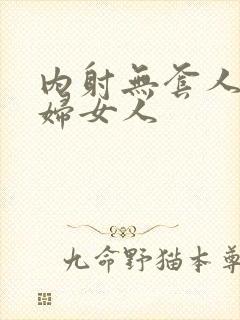 內射無套人
婦女人
九命野猫本尊